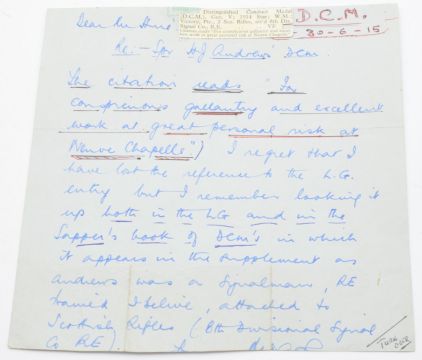 Distinguished Conduct Medal
(D.C.M.), Geo. V; 1914 Star; W.M.;
Victory, Pte., 2 Sco. Rifles,
Signal Co., R.E.
D.C.M.
-30-6-15
Dear Mr
Re:- Spr H.J Andrews' DCM.
The citation reads "For
conspicuous gallantry and excellent
work at great personal risk at
Neuve Chapelle") I regret that I
have lost the reference to the L.G.
entry but I remember looking it
up both in the LG and in the
Sapper's book of DCM's in which
it appears in the supplement as
Andrews was a Signalman, RE
trained I believe, attached to
Scottish Rifles (8th Divisional Signal
Co RE).
TURN
OVER